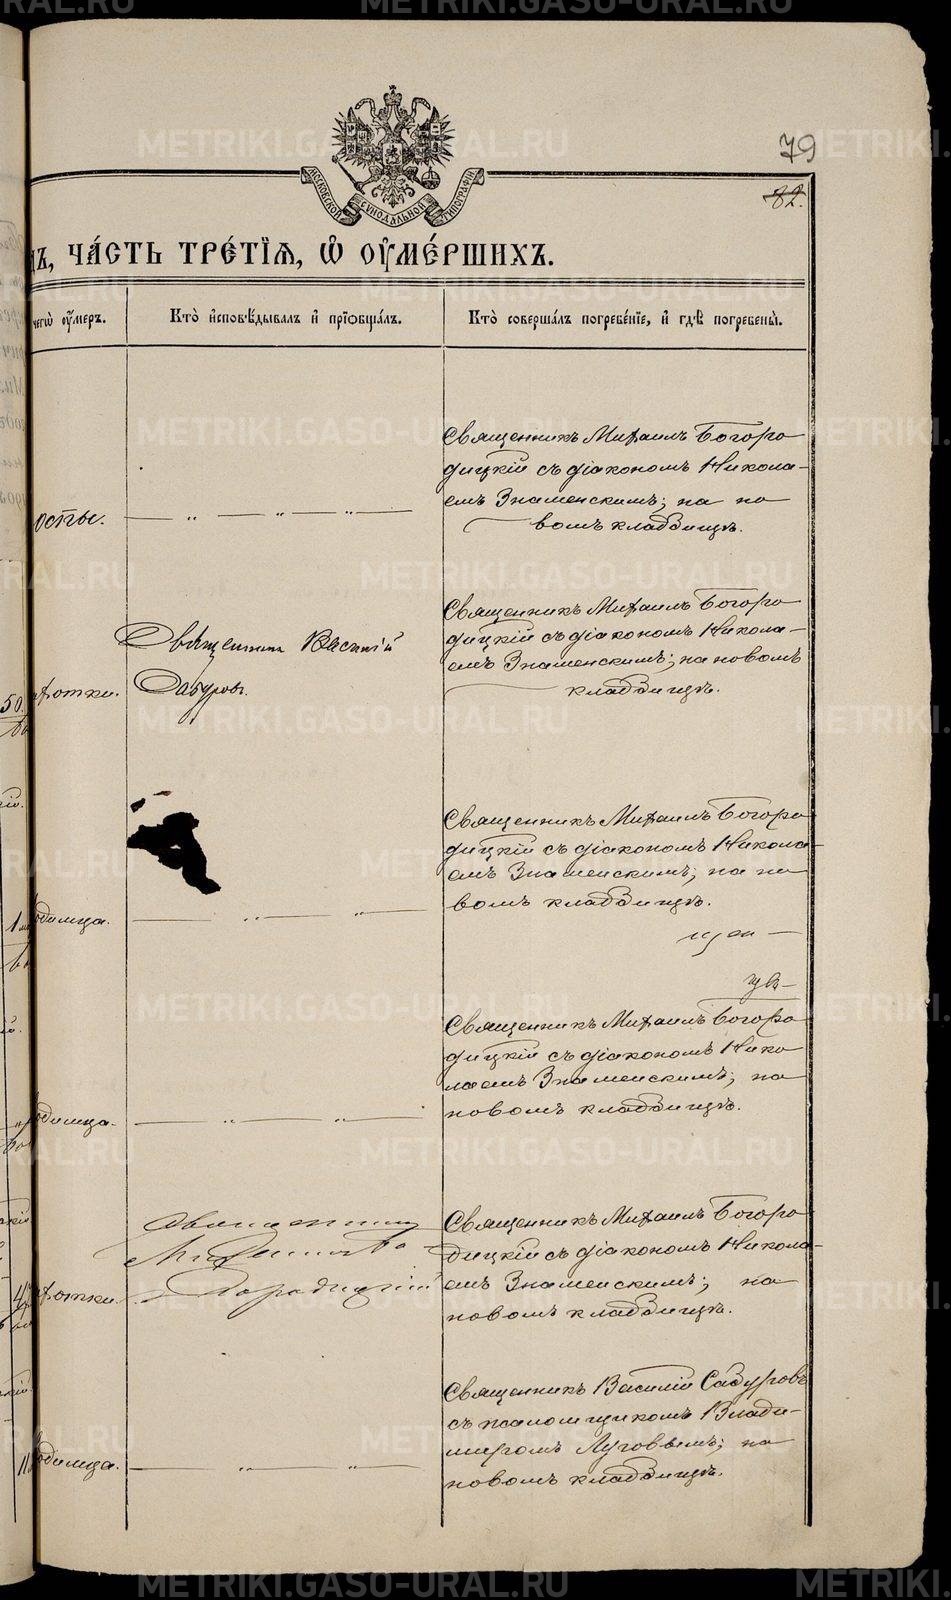 79
82.
МОСКОВСКОЙ СѴНОДАЛЬНОЙ ТИПОГРАФІИ
ЧА́СТЬ ТРЕ́ТІѦ, Ѡ҆ ОУ҆МЕ́РШИХЪ.
чегѡ̀ оу҆́меръ.
Кто̀ и҆сповѣ́дывалъ и҆ прїѻбща́лъ.
Кто̀ соверша́лъ погребе́нїе, и҆ гдѣ̀ погребены̀.
Священникъ Михаилъ Богоро
дицкій съ діакономъ Никола-
емъ Знаменскимъ; на но
вомъ кладбищѣ.
оспы.
Священникъ Василій
Сабуровъ.
чахотки.
Священникъ Михаилъ Богоро
дицкій съ діакономъ Никола-
емъ Знаменскимъ; на новомъ
кладбищѣ.
50
Священникъ Михаилъ Богоро
дицкій съ діакономъ Никола-
емъ Знаменскимъ; на но
вомъ кладбищѣ.
1
родимца.
Священникъ Михаилъ Богоро
дицкій съ діакономъ Нико
лаемъ Знаменскимъ; на
новомъ кладбищѣ.
родимца.
Священникъ
Михаилъ Бо-
городицкій
чахотки.
Священникъ Михаилъ Богоро
дицкій съ діакономъ Никола-
емъ Знаменскимъ; на
новомъ кладбищѣ.
Священникъ Василій Сабуровъ
съ псаломщикомъ Влади-
миромъ Луговымъ; на
новомъ кладбищѣ.
11
родимца.
METRIKI.GASO-URAL.RU